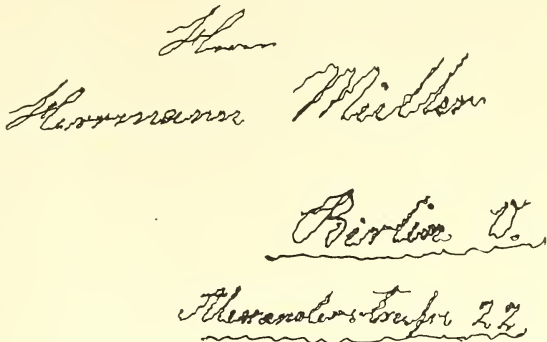 Herrn
Herrmann Müller
Berlin O.
Alexanderstraße 22